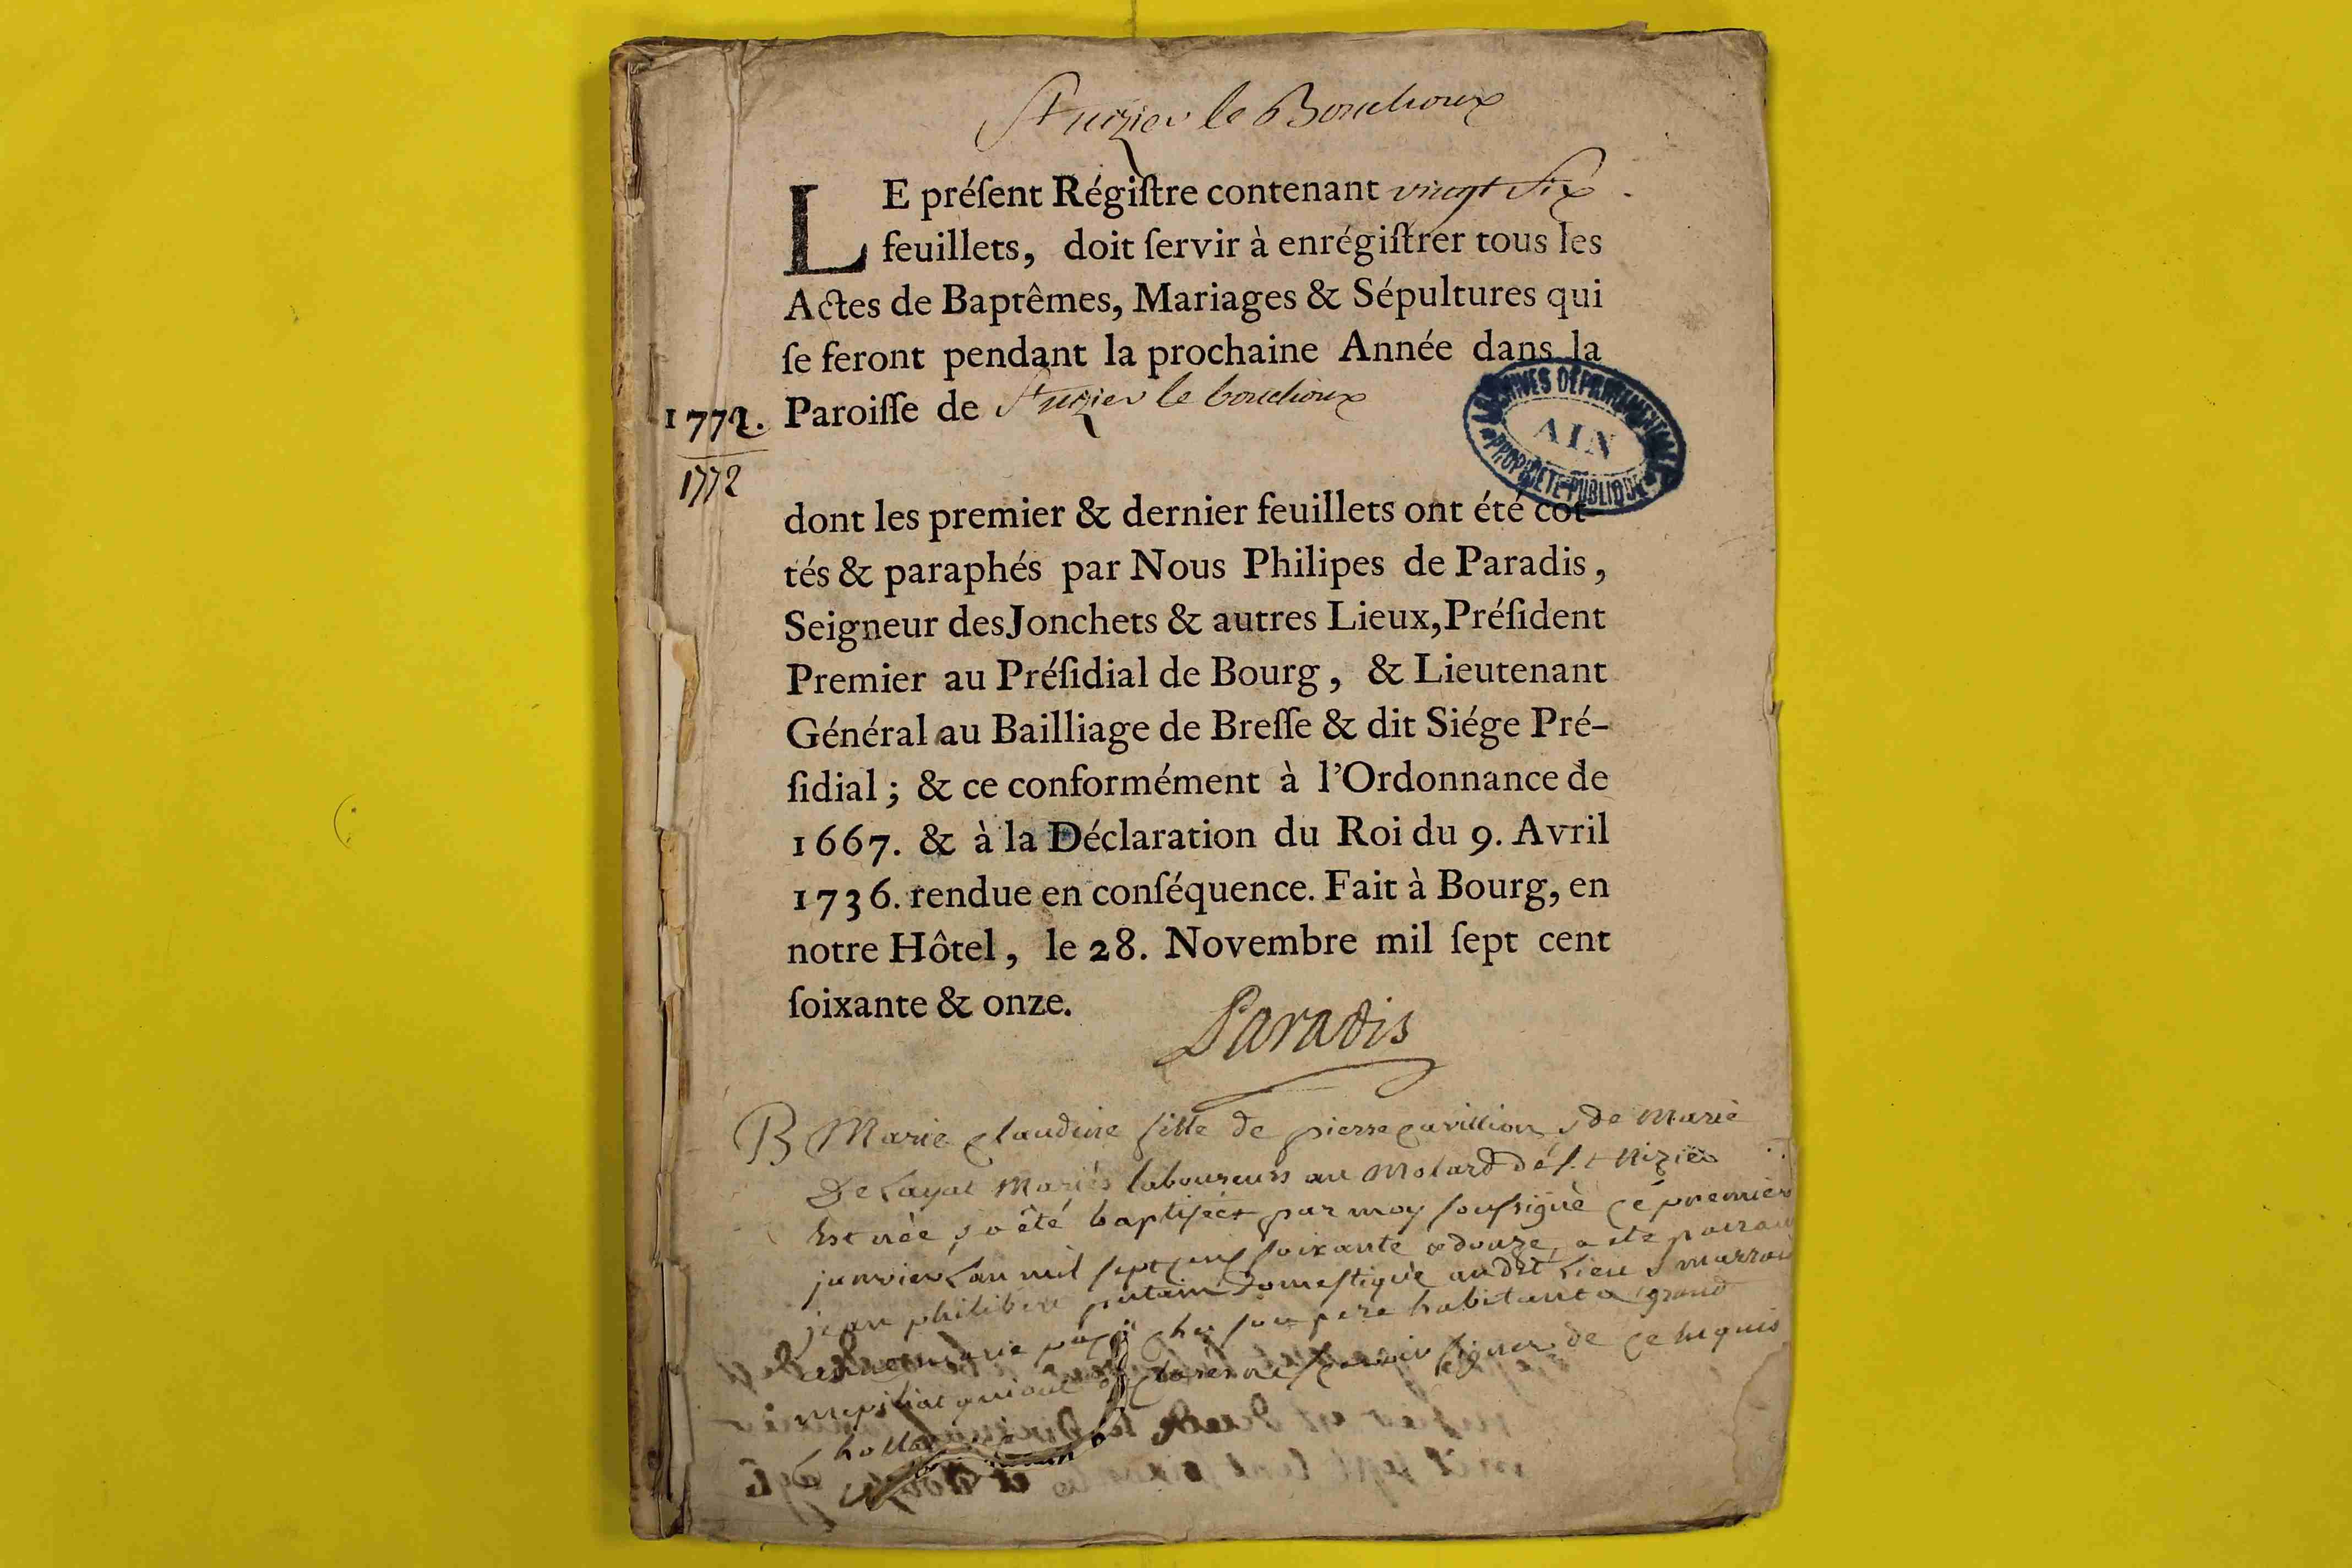 St nizier le Bouchoux
LE préſent Régiſtre contenant vingt Six
feuillets, doit ſervir à enrégiſtrer tous les
Actes de Baptêmes, Mariages & Sépultures qui
ſe feront pendant la prochaine Année dans la
1772. Paroiſſe de St nizier le bouchoux
1772
ARCHIVES DÉPARTEMENTALES
AIN
PROPRIÉTÉ PUBLIQUE
dont les premier & dernier feuillets ont été cot-
tés & paraphés par Nous Philipes de Paradis,
Seigneur des Jonchets & autres Lieux, Préſident
Premier au Préſidial de Bourg, & Lieutenant
Général au Bailliage de Breſſe & dit Siége Pré-
ſidial; & ce conformément à l'Ordonnance de
1667. & à la Déclaration du Roi du 9. Avril
1736. rendue en conſéquence. Fait à Bourg, en
notre Hôtel, le 28. Novembre mil ſept cent
ſoixante & onze.
Paradis
B Marie Claudine fille de pierre cavillion & de Marie
De Layat Mariés laboureurs au Molard de St Nizier
Est née & a été baptisée par moy soussigné ce premier
janvier l'an mil sept cens soixante & douze, a été parrain
jean philibert putain domestique audit Lieu & marrain
marie chez son pere habitant a grand
signer de ce Requis